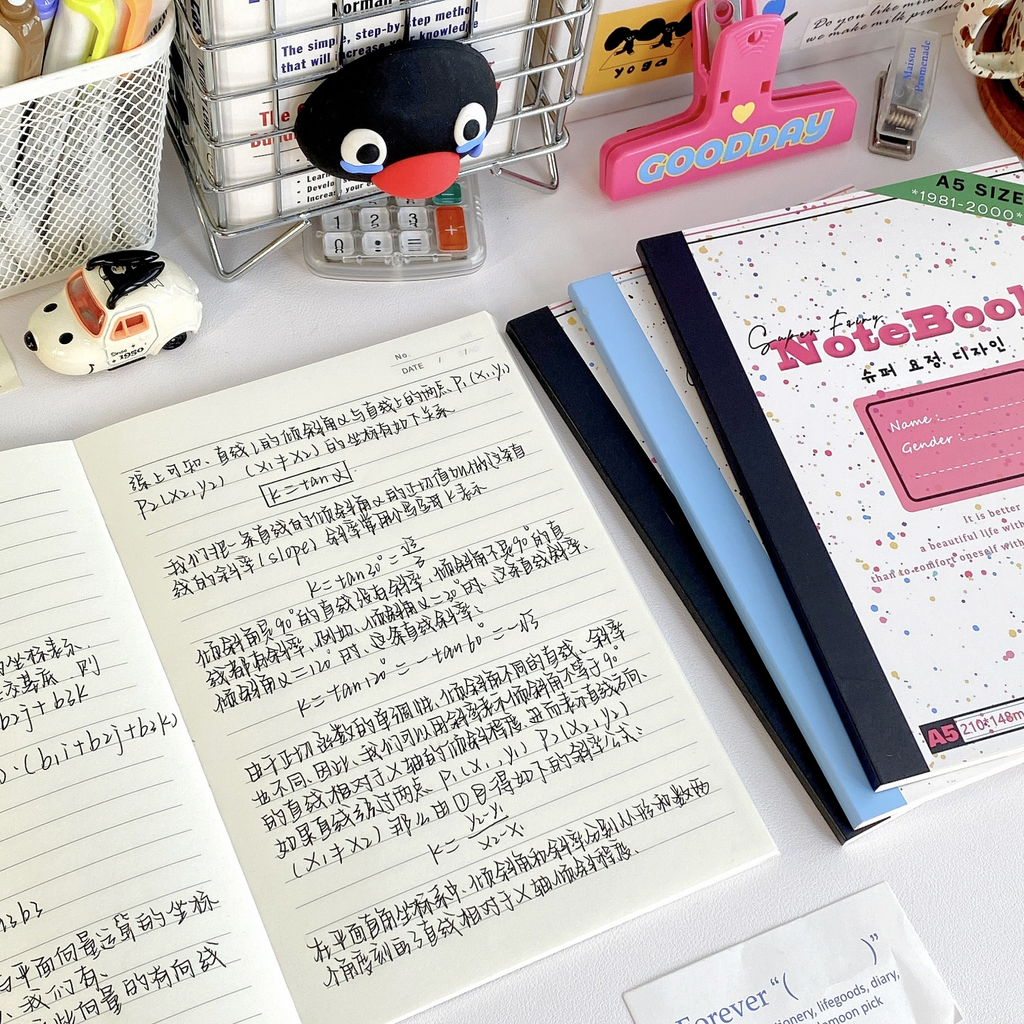 Norman
The simple, step-by-step method
that will increase your knowledge
The
• Learn
• Develop
Increase your
1 2 3
0 · = +
yoga
Do you like milk
we make milk produc
GOODDAY
Maison
Promenade
Since
1950
A5 SIZE
*1981-2000*
Super Fairy
NoteBook
슈퍼 요정 디자인
Name :
Gender :
It is better
a beautiful life with
than to comfort oneself with
A5 210*148m
No.
DATE / /
综上可知、直线l的倾斜角α与直线上的两点 P1(x1,y1)
P2(x2,y2) (x1≠x2) 的坐标有如下关系
k=tanα
我们把一条直线的倾斜角α的正切值叫做这条直
线的斜率(slope) 斜率常用小写字母k表示
k=tan30°=
倾斜角是90°的直线没有斜率,倾斜角不是90°的直
线都有斜率,例如,倾斜角α=30°时,这条直线斜率,
倾斜角α=120°时,这条直线斜率:
k=tan120°=-tan60°=-√3
由于正切函数的单调性、倾斜角不同的直线、斜率
也不同,因此,我们可以用斜率表示倾斜角不等于90°
的直线相对于x轴的倾斜程度,进而表示直线方向.
如果直线经过两点 P1(x1,y1) P2(x2,y2)
(x1≠x2) 那么由①可得如下的斜率公式:
k= y2-y1
x2-x1
在平面直角坐标系中、倾斜角和斜率分别从形和数两
个角度刻画了直线相对于x轴倾斜程度。
的坐标表示.
交基底 则
b2j+b3k
·(b1i+b2j+b3k)
3b3
与平面向量运算的坐标
我们有、
向量的有向线
Forever “( )”
tionery, lifegoods, diary,
moon pick